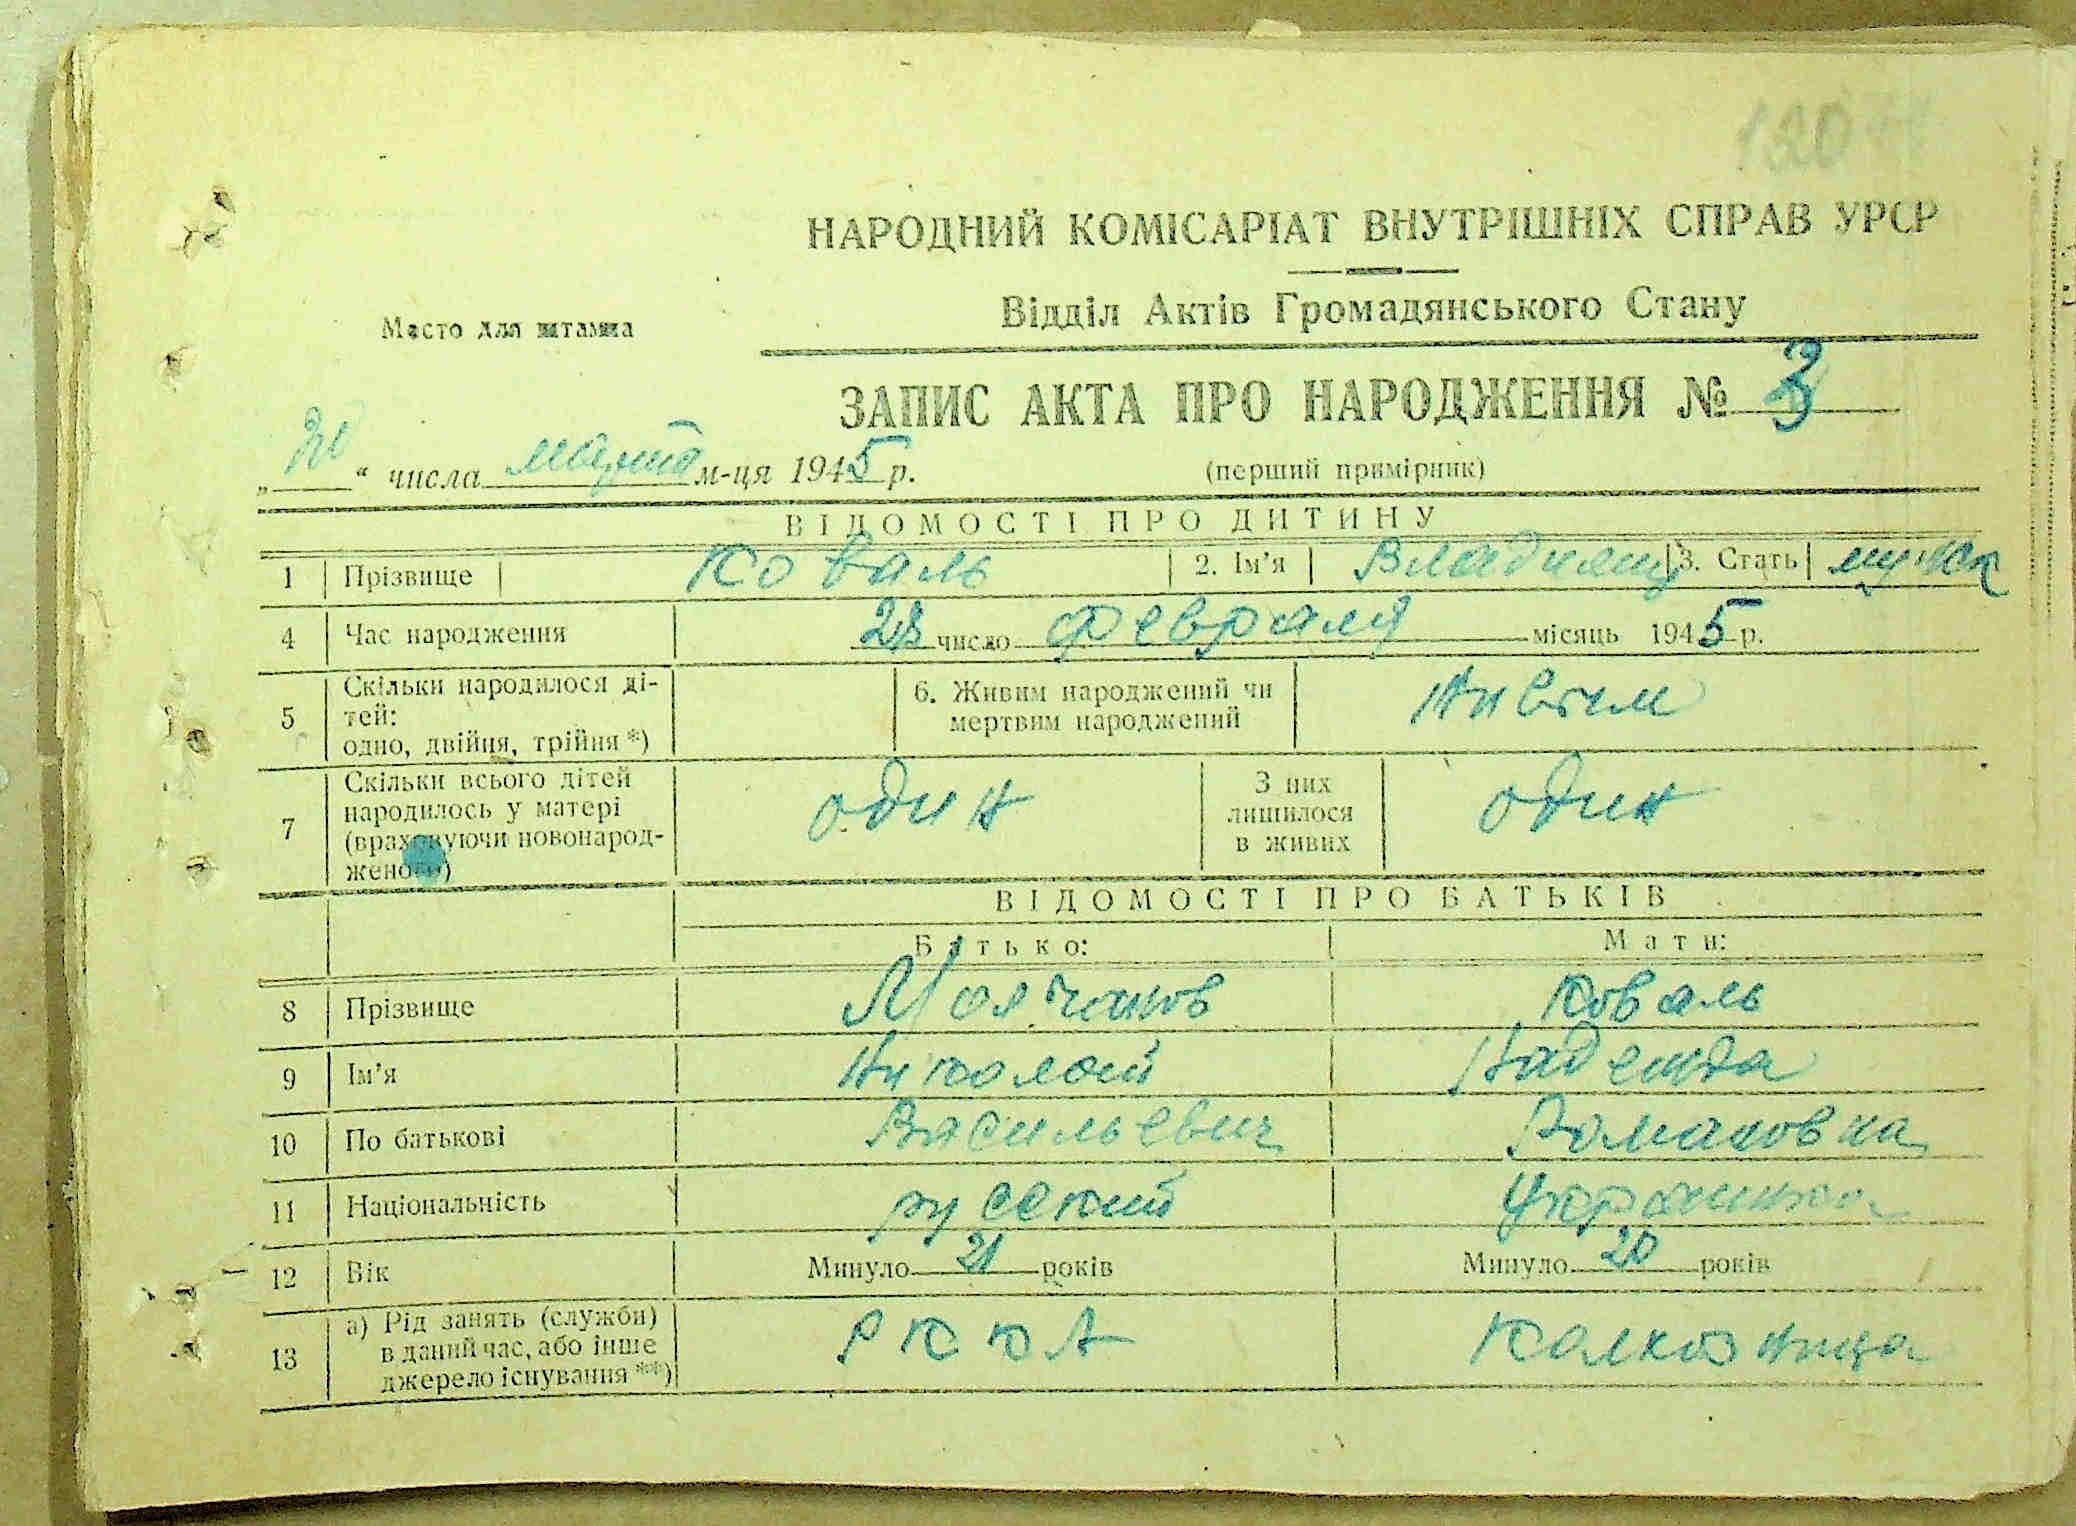 120
НАРОДНИЙ КОМІСАРІАТ ВНУТРІШНІХ СПРАВ УРСР
Відділ Актів Громадянського Стану
Место для штампа
ЗАПИС АКТА ПРО НАРОДЖЕННЯ № 3
„ “ числа марта м-ця 1945 р.
(перший примірник)
ВІДОМОСТІ ПРО ДИТИНУ
1 Прізвище Коваль 2. Ім’я Владимир 3. Стать мужск
4 Час народження 28 число февраля місяць 1945 р.
5 Скільки народилося ді-
тей:
одно, двійня, трійня *)
6. Живим народжений чи
мертвим народжений
живым
7 Скільки всього дітей
народилось у матері
(враховуючи новонарод-
женого)
один
З них
лишилося
в живих
один
ВІДОМОСТІ ПРО БАТЬКІВ
Батько: Мати:
8 Прізвище Молчанов Коваль
9 Ім’я Николай Надежда
10 По батькові Васильевич Романовна
11 Національність русский Украинка
12 Вік Минуло 21 років Минуло 20 років
13 а) Рід занять (служби)
в даний час, або інше
джерело існування **)
РККА Колхозница